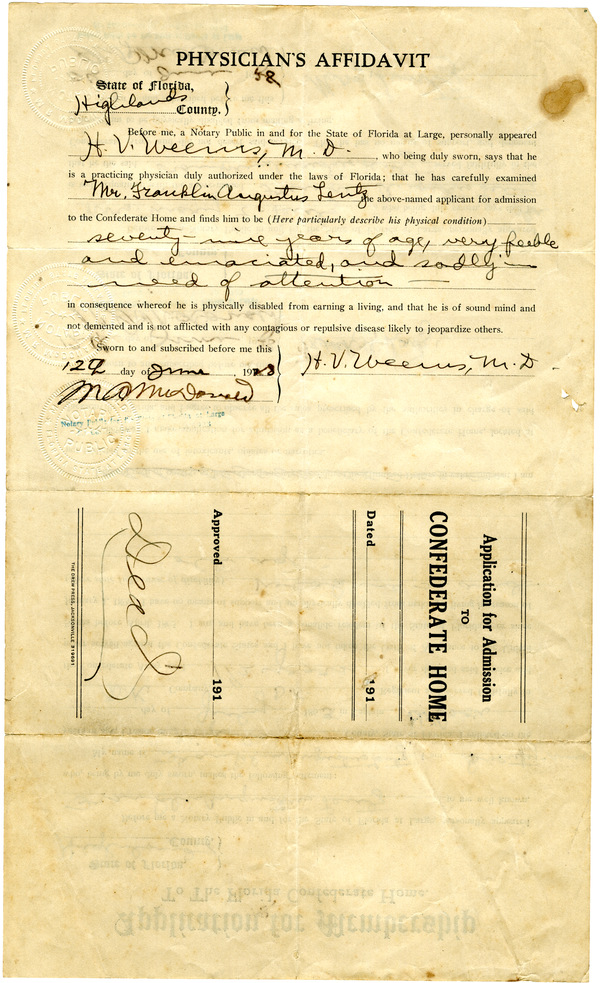 PHYSICIAN'S AFFIDAVIT
58
State of Florida,
Highlands County.
Before me, a Notary Public in and for the State of Florida at Large, personally appeared
H. V. Weems, M. D. , who being duly sworn, says that he
is a practicing physician duly authorized under the laws of Florida; that he has carefully examined
Mr. Franklin Augustus Lentz the above-named applicant for admission
to the Confederate Home and finds him to be (Here particularly describe his physical condition)
seventy-nine years of age, very feeble
and emaciated, and sadly in
need of attention —
in consequence whereof he is physically disabled from earning a living, and that he is of sound mind and
not demented and is not afflicted with any contagious or repulsive disease likely to jeopardize others.
Sworn to and subscribed before me this
day of June , 19
H. V. Weems, M. D.
McDonald
Notary at Large
NOTARY PUBLIC
Application for Admission
TO
CONFEDERATE HOME
Dated 191
Approved 191
Dead
THE DREW PRESS, JACKSONVILLE
Application for Membership
To The Florida Confederate Home.
State of Florida,
County.